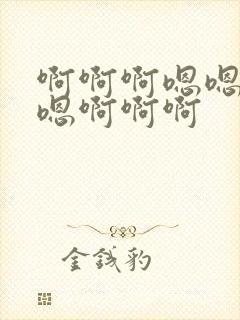 啊啊啊嗯嗯
嗯啊啊啊
金钱豹